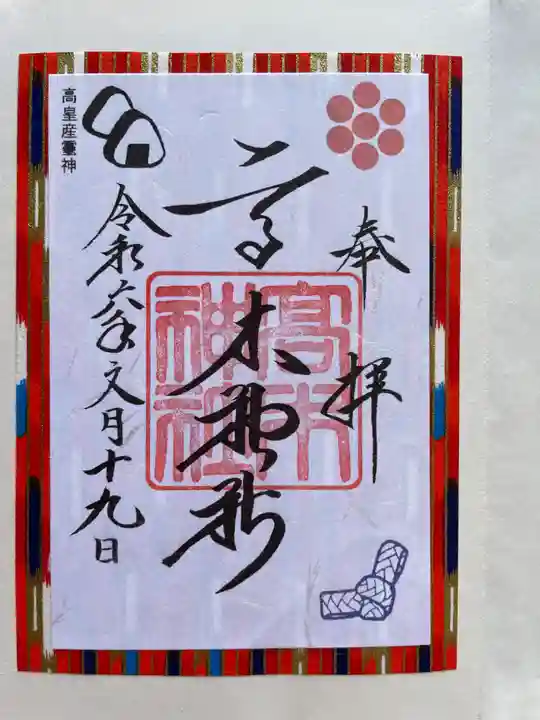 奉拝
高木神社
高木神社
令和六年文月十九日
高皇産靈神